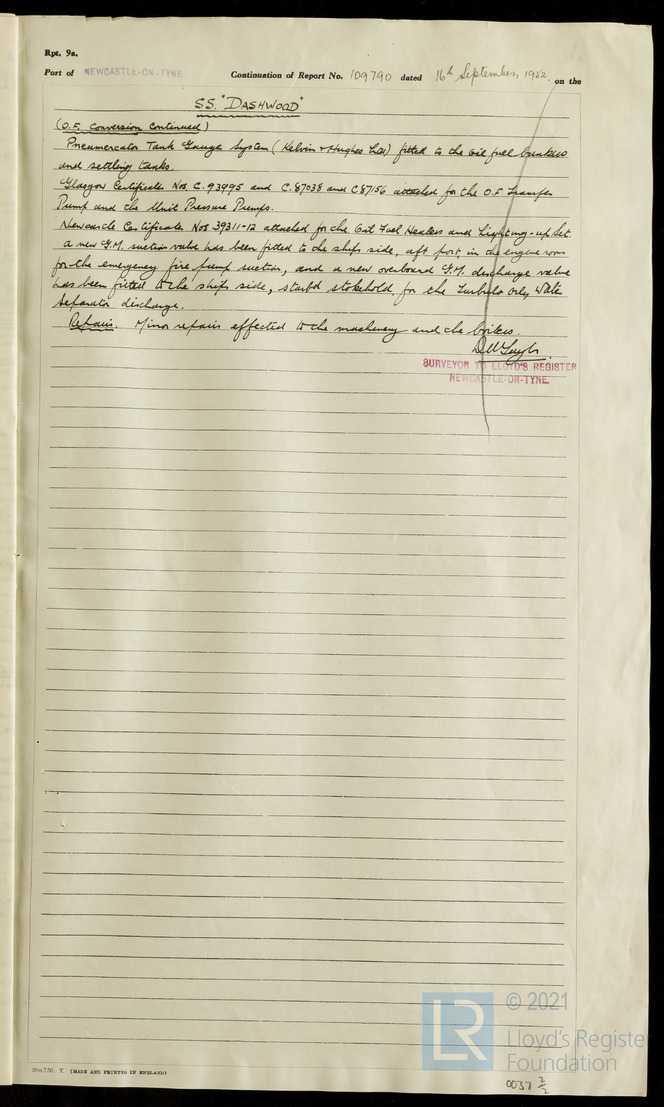 Rpt. 9a.
Port of NEWCASTLE-ON-TYNE Continuation of Report No. 109790 dated 16th September, 1952 on the
S.S. "DASHWOOD"
(O.F. Conversion Continued)
Pneumercator Tank Gauge System (Kelvin & Hughes Ltd) fitted to the Oil fuel bunkers
and settling tanks.
Glasgow Certificates Nos. C.93995 and C.87038 and C87156 attached for the O.F. Transfer
Pump and the Unit Pressure Pumps.
Newcastle Certificates Nos 39311-12 attached for the Oil Fuel Heaters and Lighting-up Set
a new G.M. suction valve has been fitted to the ships side, aft port, in the engine room
for the emergency fire pump suction, and a new overboard G.M. discharge valve
has been fitted to the ships side, starbd stokehold for the Turbulo Oily Water
Separator discharge.
Repairs. Minor repairs effected to the machinery and the boilers.
SURVEYOR TO LLOYD'S REGISTER
NEWCASTLE-ON-TYNE.
20m.7.50. T. (MADE AND PRINTED IN ENGLAND)
LR
© 2021
Lloyd's Register
Foundation
0037 2/2